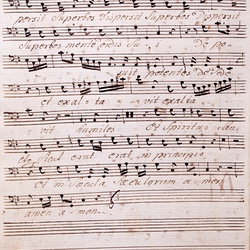 persit Superbos Dispersit Superbos Dispersit
Superbos mente cordis Su i De po
suit potentes De sede
et exal ta vit exalta
vit humiles et Spiritui San
cto sicut erat erat in principio
et in Saecula saeculorum a men
amen a men